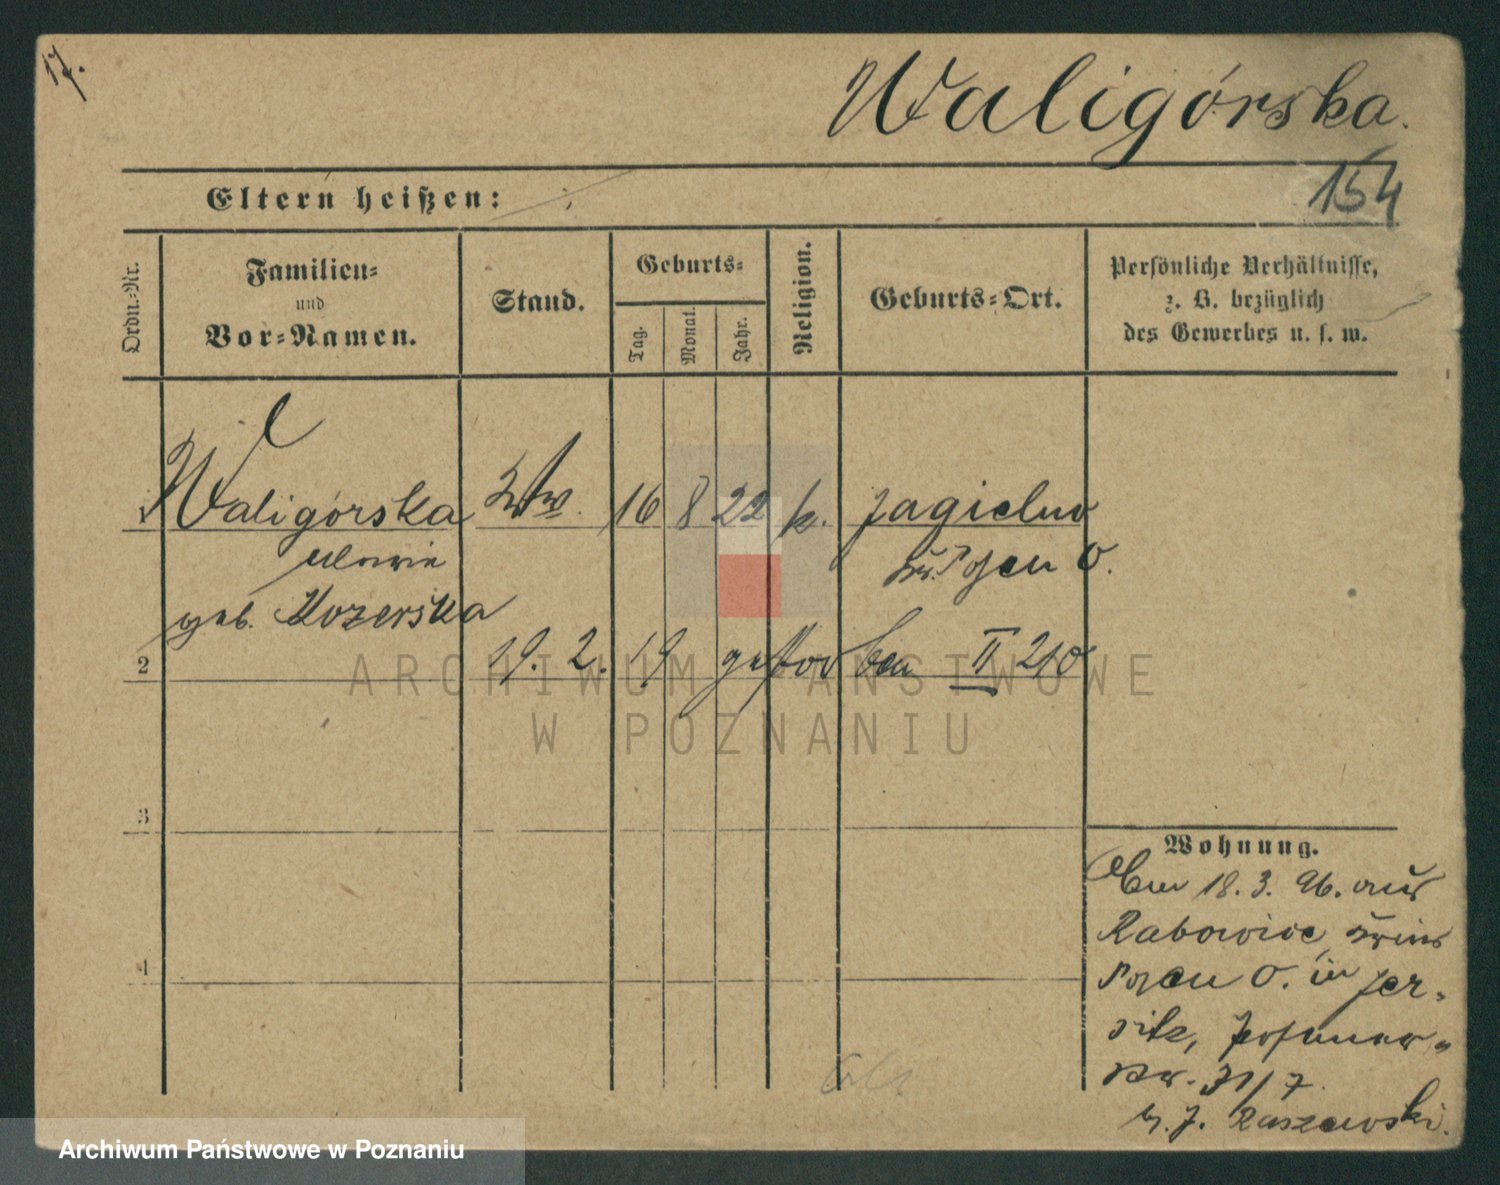 17.
Waligórska.
154
Eltern heißen:
Ordn.-Nr.
Familien-
und
Vor-Namen.
Stand.
Geburts-
Tag.
Monat.
Jahr.
Religion.
Geburts-Ort.
Persönliche Verhältnisse,
z. B. bezüglich
des Gewerbes u. s. w.
Waligórska Ww. 16 8 22 k. Jagielno
Marie Kr. Posen O.
geb. Kozerska
2 19. 2. 19 gestorben II 210
3
4
Wohnung.
Am 18. 3. 96. aus
Rabowice, Kreis
Posen O. in Jer-
sitz, Posener-
str. 31/7.
b. J. Raszewski.
ARCHIWUM PAŃSTWOWE
W POZNANIU
Archiwum Państwowe w Poznaniu